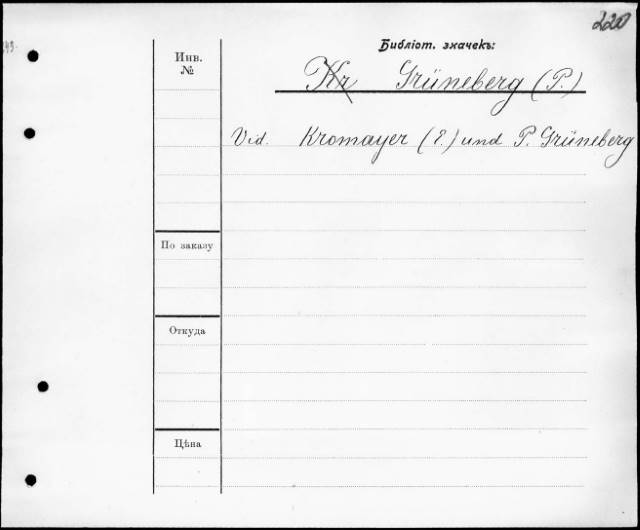 220
Библіот. значекъ:
Инв.
№
Kr Grüneberg (P.)
Vid. Kromayer (E.) und P. Grüneberg
По заказу
Откуда
Цѣна